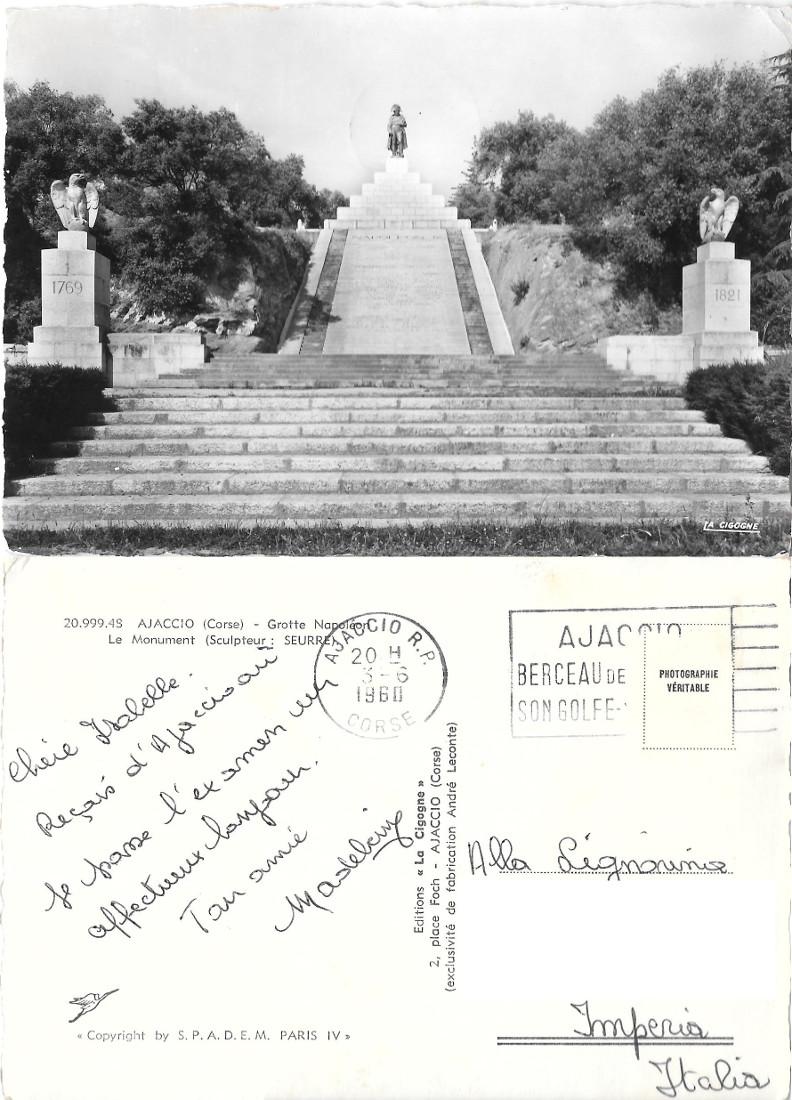 1769
1821
LA CIGOGNE
20.999.4S AJACCIO (Corse) - Grotte Napoléon
Le Monument (Sculpteur : SEURRE)
AJACCIO R.P.
20 H
3-6
1960
CORSE
AJACCIO
BERCEAU DE
SON GOLFE-
PHOTOGRAPHIE
VÉRITABLE
Chère Isabelle.
Reçois d'Ajaccio où
je passe l'examen un
affectueux bonjour.
Ton amie
Madeleine
Editions « La Cigogne »
2, place Foch - AJACCIO (Corse)
(exclusivité de fabrication André Leconte)
Alla Signorina
Imperia
Italia
« Copyright by S.P.A.D.E.M. PARIS IV »